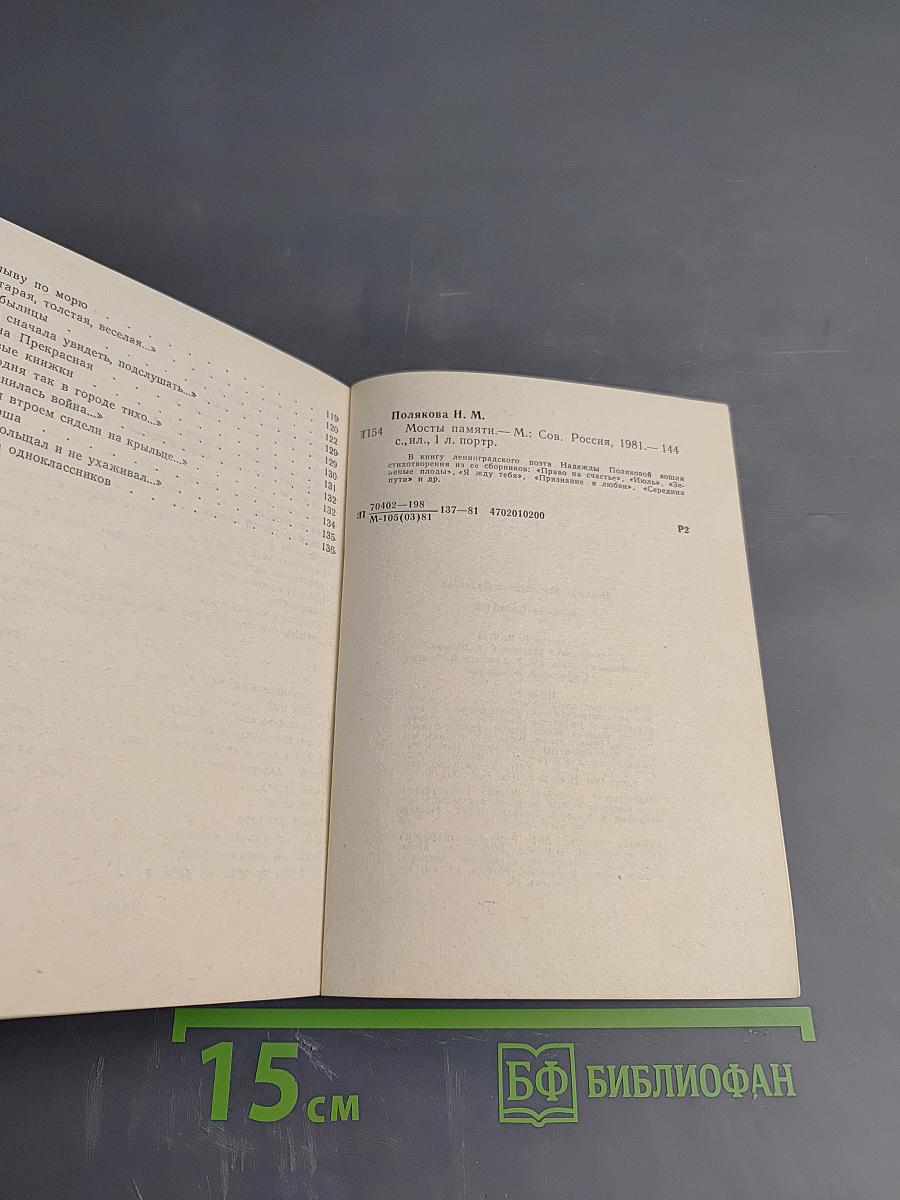 по морю
толстая, веселая...»
былицы
сначала увидеть, подслушать...»
Прекрасная
книжки
так в городе тихо...»
война...»
втроем сидели на крыльце...»
и не ухаживал...»
одноклассников
119
120
122
129
129
130
131
132
132
134
135
136
Полякова Н. М.
П54 Мосты памяти.— М.: Сов. Россия, 1981.— 144
с., ил., 1 л. портр.
В книгу ленинградского поэта Надежды Поляковой вошли
стихотворения из ее сборников: «Право на счастье», «Июль», «Зе-
леные плоды», «Я жду тебя», «Признание в любви», «Середина
пути» и др.
П 70402—198
М-105(03)81 137—81 4702010200
Р2
15 см
БФ БИБЛИОФАН